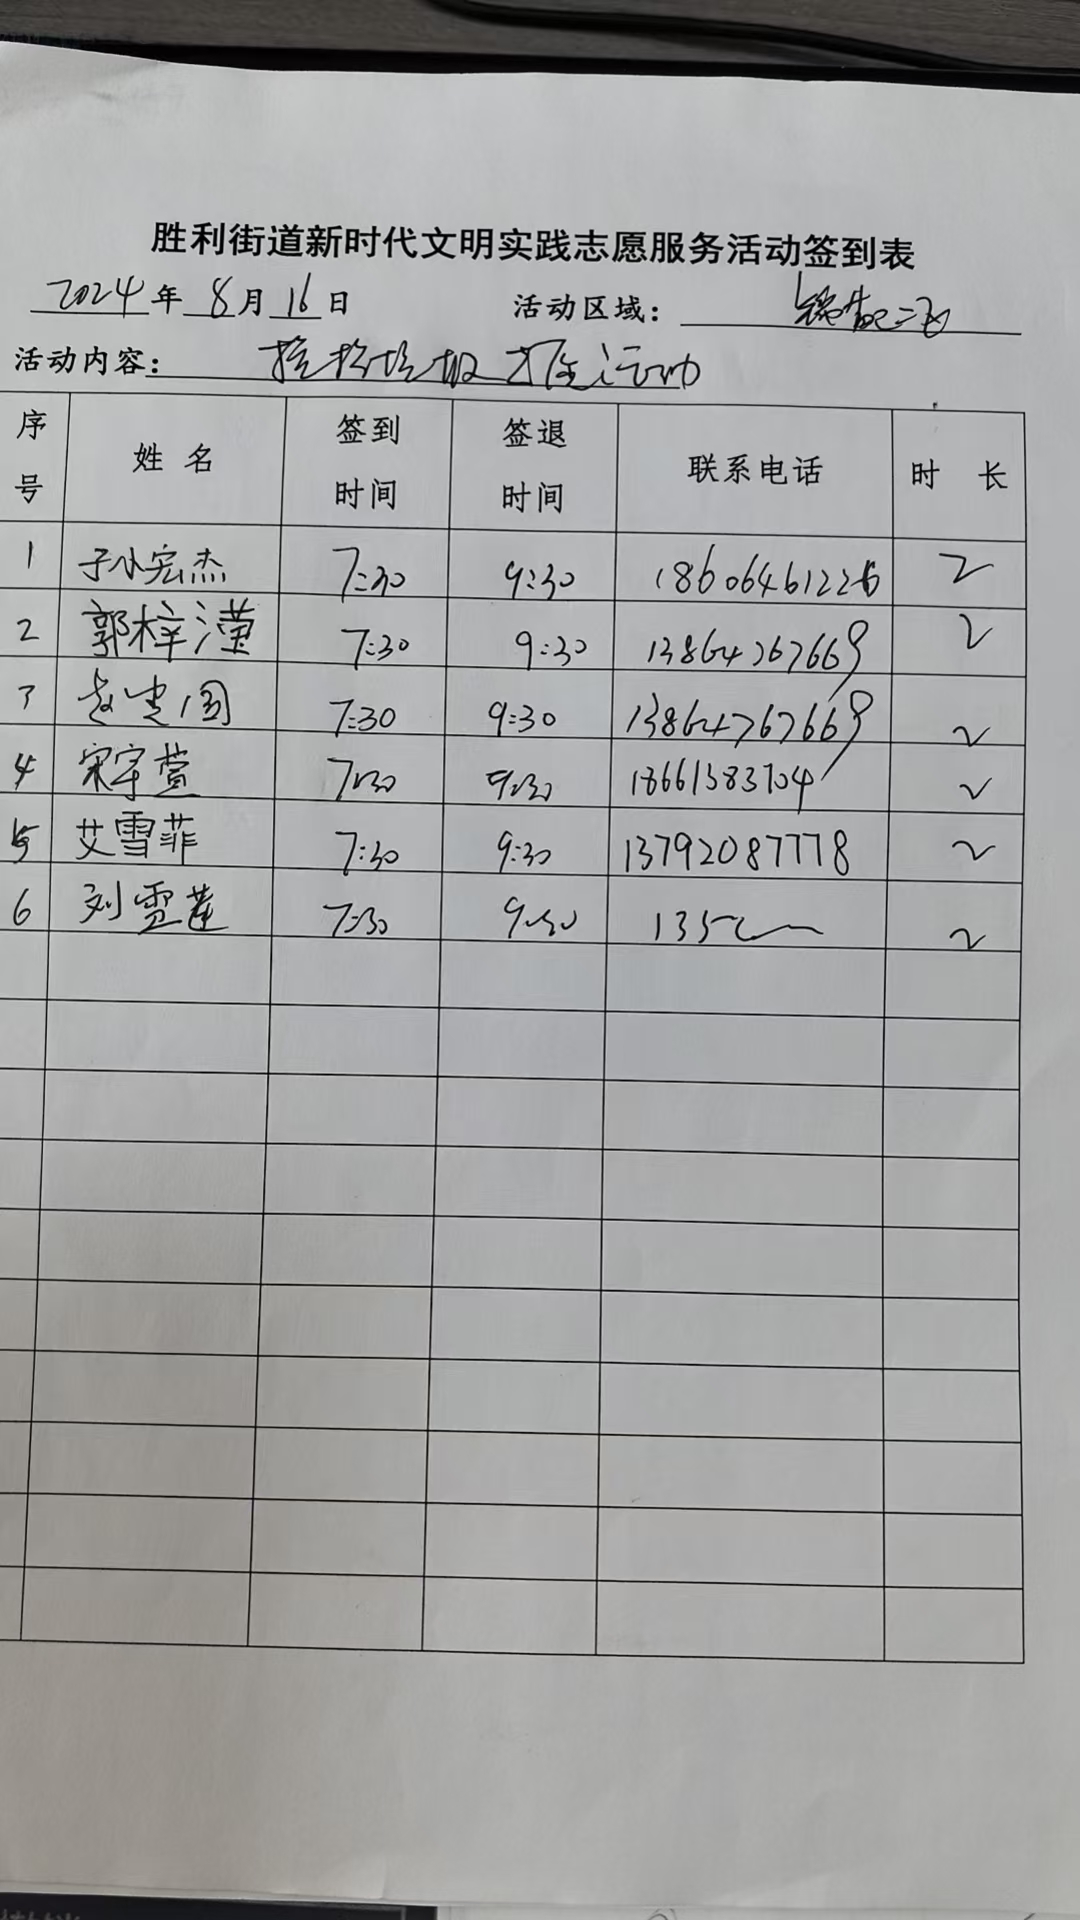 胜利街道新时代文明实践志愿服务活动签到表
2024年 8月 16日 活动区域：
活动内容： 捡拾垃圾 运动
序号 姓名 签到时间 签退时间 联系电话 时长
1 孙宏杰 7:30 9:30 18606461226 2
2 郭梓滢 7:30 9:30 13864767669 2
3 7:30 9:30 13864767669 2
4 宋宇萱 7:30 9:30 18661383704 2
5 艾雪菲 7:30 9:30 13792087778 2
6 刘雪莲 7:30 9:30 135 2